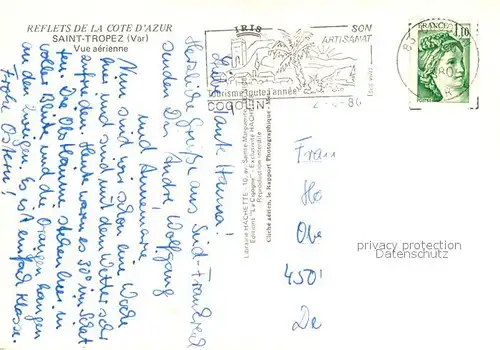 REFLETS DE LA COTE D'AZUR
SAINT-TROPEZ (Var)
Vue aérienne
IRIS
SON
ARTISANAT
Tourisme toutes année
COGOLIN
80
FRANCE
1,10
Librairie HACHETTE - 10, av. Sainte-Marguerite
Editions "La Cigogne" - Exclusivité HACHETTE
Reproduction interdite
Cliché aérien, le Rapport Photographique
Liebe Tante Hanna!
Herzliche Grüße aus Süd-Frankreich
senden Dir André, Wolfgang
und Annemarie
Nun sind wir schon eine Woche
hier und sind mit dem Wetter sehr
zufrieden. Heute waren es 30° im Schat-
ten. Die Obstbäume stehen hier in
voller Blüte und die Orangen hängen
an den Zweigen. Es ist einfach Klasse.
Frohe Ostern!
Frau
Ho
Obe
450
De
privacy protection
Datenschutz